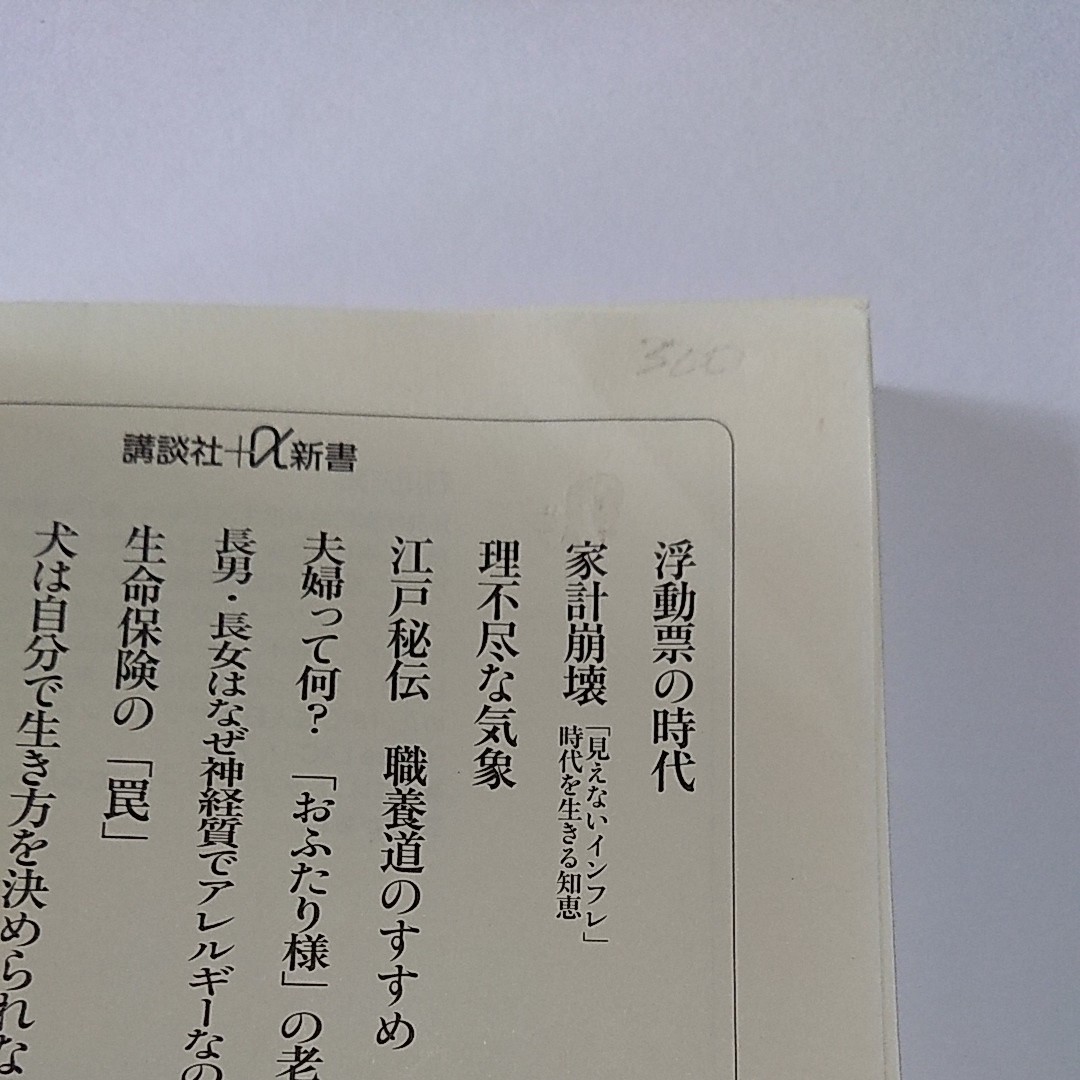 講談社+α新書
浮動票の時代
家計崩壊 「見えないインフレ」
時代を生きる知恵
理不尽な気象
江戸秘伝 職養道のすすめ
夫婦って何? 「おふたり様」の老
長男・長女はなぜ神経質でアレルギーなの
生命保険の「罠」
犬は自分で生き方を決められな